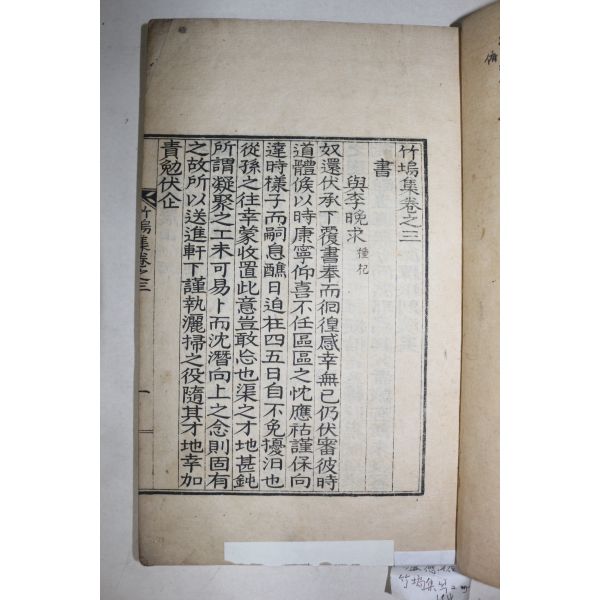 竹塢集卷之三
書
與李晩求 種杞
奴還伏承下覆書奉而徊徨感幸無已仍伏審彼時
道體候以時康寧仰喜不任區區之忱應祜謹保向
達時樣子而嗣息醮日迫在四五日自不免擾汨也
從孫之往幸蒙收置此意豈敢忘也渠之才地甚鈍
所謂凝聚之工未可易卜而沈潛向上之念則固有
之故所以送進軒下謹執灑掃之役隨其才地幸加
責勉伏企
竹塢集卷之三 一
竹塢集